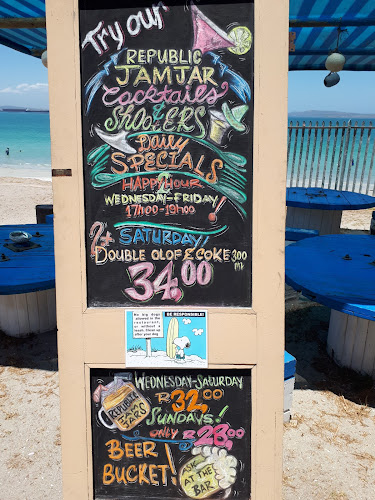 Try our
REPUBLIC
JAMJAR
Cocktails
&
SHOOTERS
Daily
SPECIALS
HAPPY HOUR
WEDNESDAY-FRIDAY!
17h00-19h00
2+ SATURDAY!
DOUBLE OLOF & COKE 300
ml
34.00
No big dogs
allowed in the
restaurant,
or without a
leash. Clean up
after your dog.
BE RESPONSIBLE!
WEDNESDAY-SATURDAY
R32.00
SUNDAYS!
ONLY R28.00
REPUBLIC
BEER
BUCKET!
ASK
AT THE
BAR